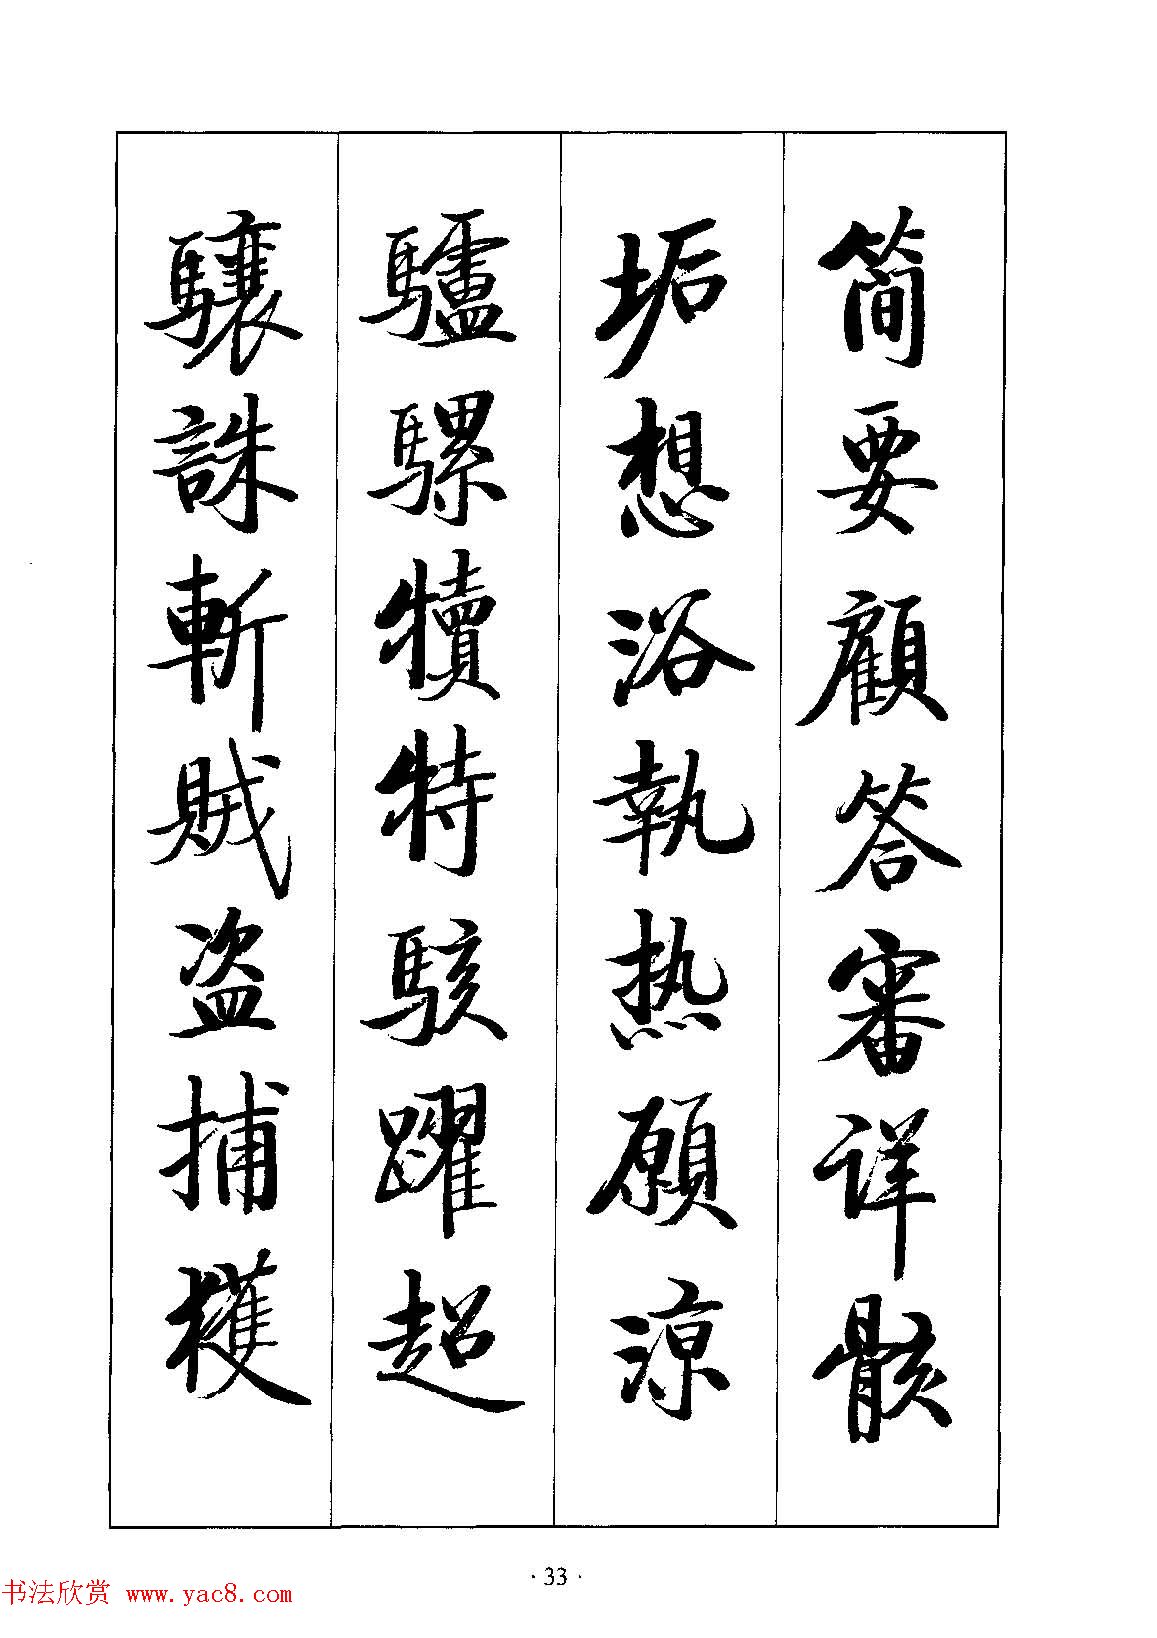 简要顧答審详骸
垢想浴執热願涼
驢騾犢特駭躍超
驤誅斬賊盗捕獲
·33·
书法欣赏 www.yac8.com